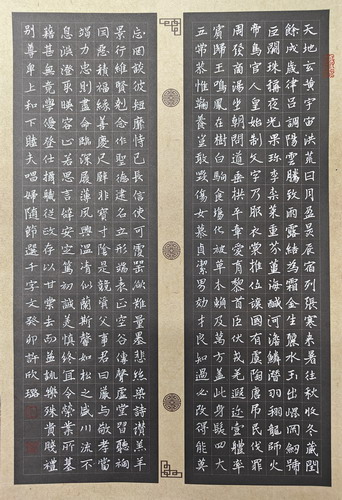 天地玄黃宇宙洪荒日月盈昃辰宿列張寒來暑往秋收冬藏閏
餘成歲律呂調陽雲騰致雨露結為霜金生麗水玉出崑岡劍號
巨闕珠稱夜光果珍李柰菜重芥薑海鹹河淡鱗潛羽翔龍師火
帝鳥官人皇始制文字乃服衣裳推位讓國有虞陶唐弔民伐罪
周發商湯坐朝問道垂拱平章愛育黎首臣伏戎羌遐邇壹體率
賓歸王鳴鳳在樹白駒食場化被草木賴及萬方蓋此身髮四大
五常恭惟鞠養豈敢毀傷女慕貞潔男效才良知過必改得能莫
忘罔談彼短靡恃己長信使可覆器欲難量墨悲絲染詩讚羔羊
景行維賢剋念作聖德建名立形端表正空谷傳聲虛堂習聽禍
因惡積福緣善慶尺璧非寶寸陰是競資父事君曰嚴與敬孝當
竭力忠則盡命臨深履薄夙興溫凊似蘭斯馨如松之盛川流不
息淵澄取映容止若思言辭安定篤初誠美慎終宜令榮業所基
藉甚無竟學優登仕攝職從政存以甘棠去而益詠樂殊貴賤禮
別尊卑上和下睦夫唱婦隨節選千字文癸卯許欣璐